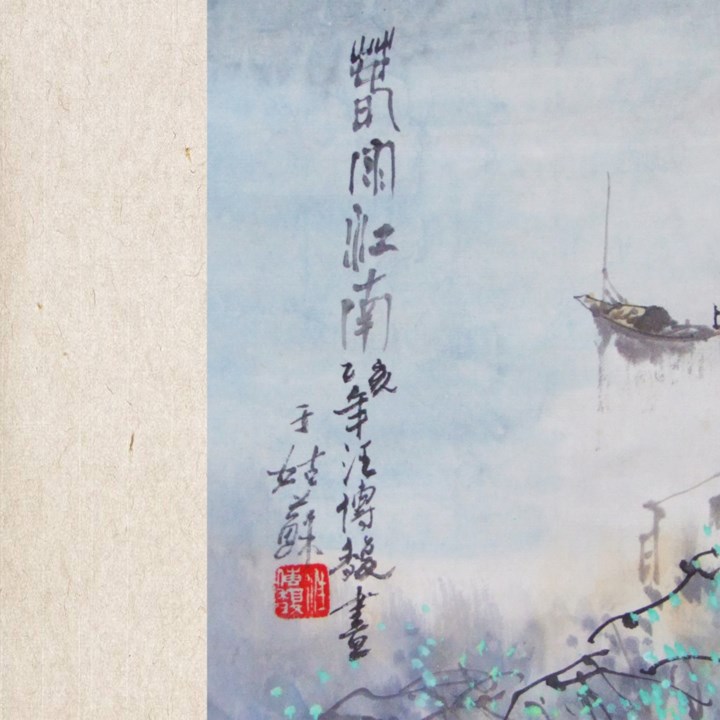 春雨江南乙亥年汪傳馥畫
于姑蘇
汪傳馥